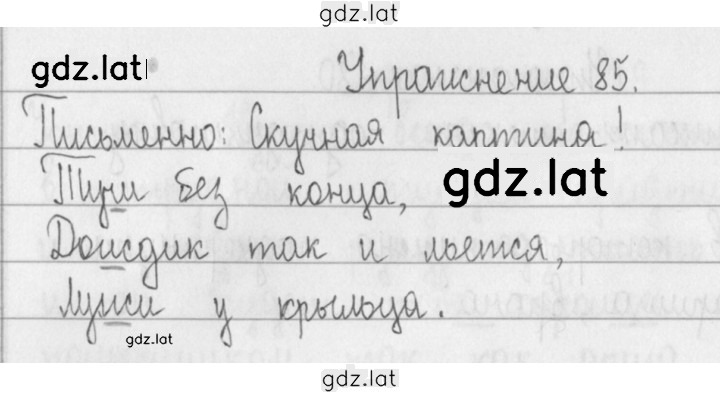 gdz.lat
gdz.lat
Упражнение 85.
Письменно: Скучная картина!
Тучи без конца,
gdz.lat
Дождик так и льется,
Лужи у крыльца.
gdz.lat
gdz.lat